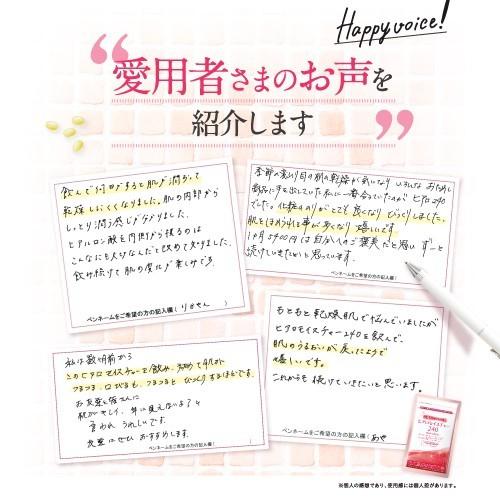 Happy voice!
“愛用者さまのお声を
紹介します”
飲んで何日かすると肌が潤おって
乾燥しにくくなりました。肌の内部から
しっとり潤う感じがありました。
ヒアルロン酸を内側から補うのは
こんなにも大切なんだと改めて知りました。
飲み続けて肌の変化が楽しみです。
ペンネームをご希望の方の記入欄（りさせん）
季節の変り目の肌の乾燥が気になり いろんなお試し
商品に手を出していた私に一番合っていたのが ヒアロ240
でした。化粧ののりがとても良くなり びっくりしました。
肌をほめられる事が多くなり 嬉しいです。
1ヶ月5400円は自分への ご褒美だと思い ずーっと
続けていきたいと思っています。
ペンネームをご希望の方の記入欄（
もともと乾燥肌で悩んでいましたが
ヒアロモイスチャー240を飲んで、
肌のうるおいが戻ったようで
嬉しいです。
これからも続けていきたいと思います。
ペンネームをご希望の方の記入欄（あや
私は数年前から
このヒアロモイスチャーを飲み、
お友達と皆さんに
肌がキレイ、年に見えないよ？と
言われ うれしいです。
友達にぜひ おすすめします。
ペンネームをご希望の方の記入欄（ ）
ヒアロモイスチャー
240
※個人の感想であり、使用感には個人差があります。